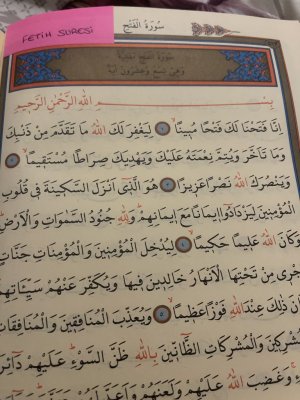 FETİH SURESİ
سُورَةُ الْفَتْحِ
سُورَةُ الْفَتْحِ مَدَنِيَّةٌ
وَهِيَ تِسْعٌ وَعِشْرُونَ اٰيَةً
بِسْمِ اللّٰهِ الرَّحْمٰنِ الرَّحِيمِ
اِنَّا فَتَحْنَا لَكَ فَتْحًا مُبِينًا ١ لِيَغْفِرَ لَكَ اللّٰهُ مَا تَقَدَّمَ مِنْ ذَنْبِكَ
وَمَا تَاَخَّرَ وَيُتِمَّ نِعْمَتَهُ عَلَيْكَ وَيَهْدِيَكَ صِرَاطًا مُسْتَقِيمًا ٢
وَيَنْصُرَكَ اللّٰهُ نَصْرًا عَزِيزًا ٣ هُوَ الَّذِى اَنْزَلَ السَّكِينَةَ فِى قُلُوبِ
الْمُؤْمِنِينَ لِيَزْدَادُوا اِيمَانًا مَعَ اِيمَانِهِمْ وَلِلّٰهِ جُنُودُ السَّمٰوَاتِ وَالْاَرْضِ
وَكَانَ اللّٰهُ عَلِيمًا حَكِيمًا ٤ لِيُدْخِلَ الْمُؤْمِنِينَ وَالْمُؤْمِنَاتِ جَنَّاتٍ
تَجْرِى مِنْ تَحْتِهَا الْاَنْهَارُ خَالِدِينَ فِيهَا وَيُكَفِّرَ عَنْهُمْ سَيِّئَاتِهِمْ
وَكَانَ ذٰلِكَ عِنْدَ اللّٰهِ فَوْزًا عَظِيمًا ٥ وَيُعَذِّبَ الْمُنَافِقِينَ وَالْمُنَافِقَاتِ
وَالْمُشْرِكِينَ وَالْمُشْرِكَاتِ الظَّانِّينَ بِاللّٰهِ ظَنَّ السَّوْءِ عَلَيْهِمْ دَائِرَةُ
وَغَضِبَ اللّٰهُ عَلَيْهِمْ وَلَعَنَهُمْ وَاَعَدَّ لَهُمْ